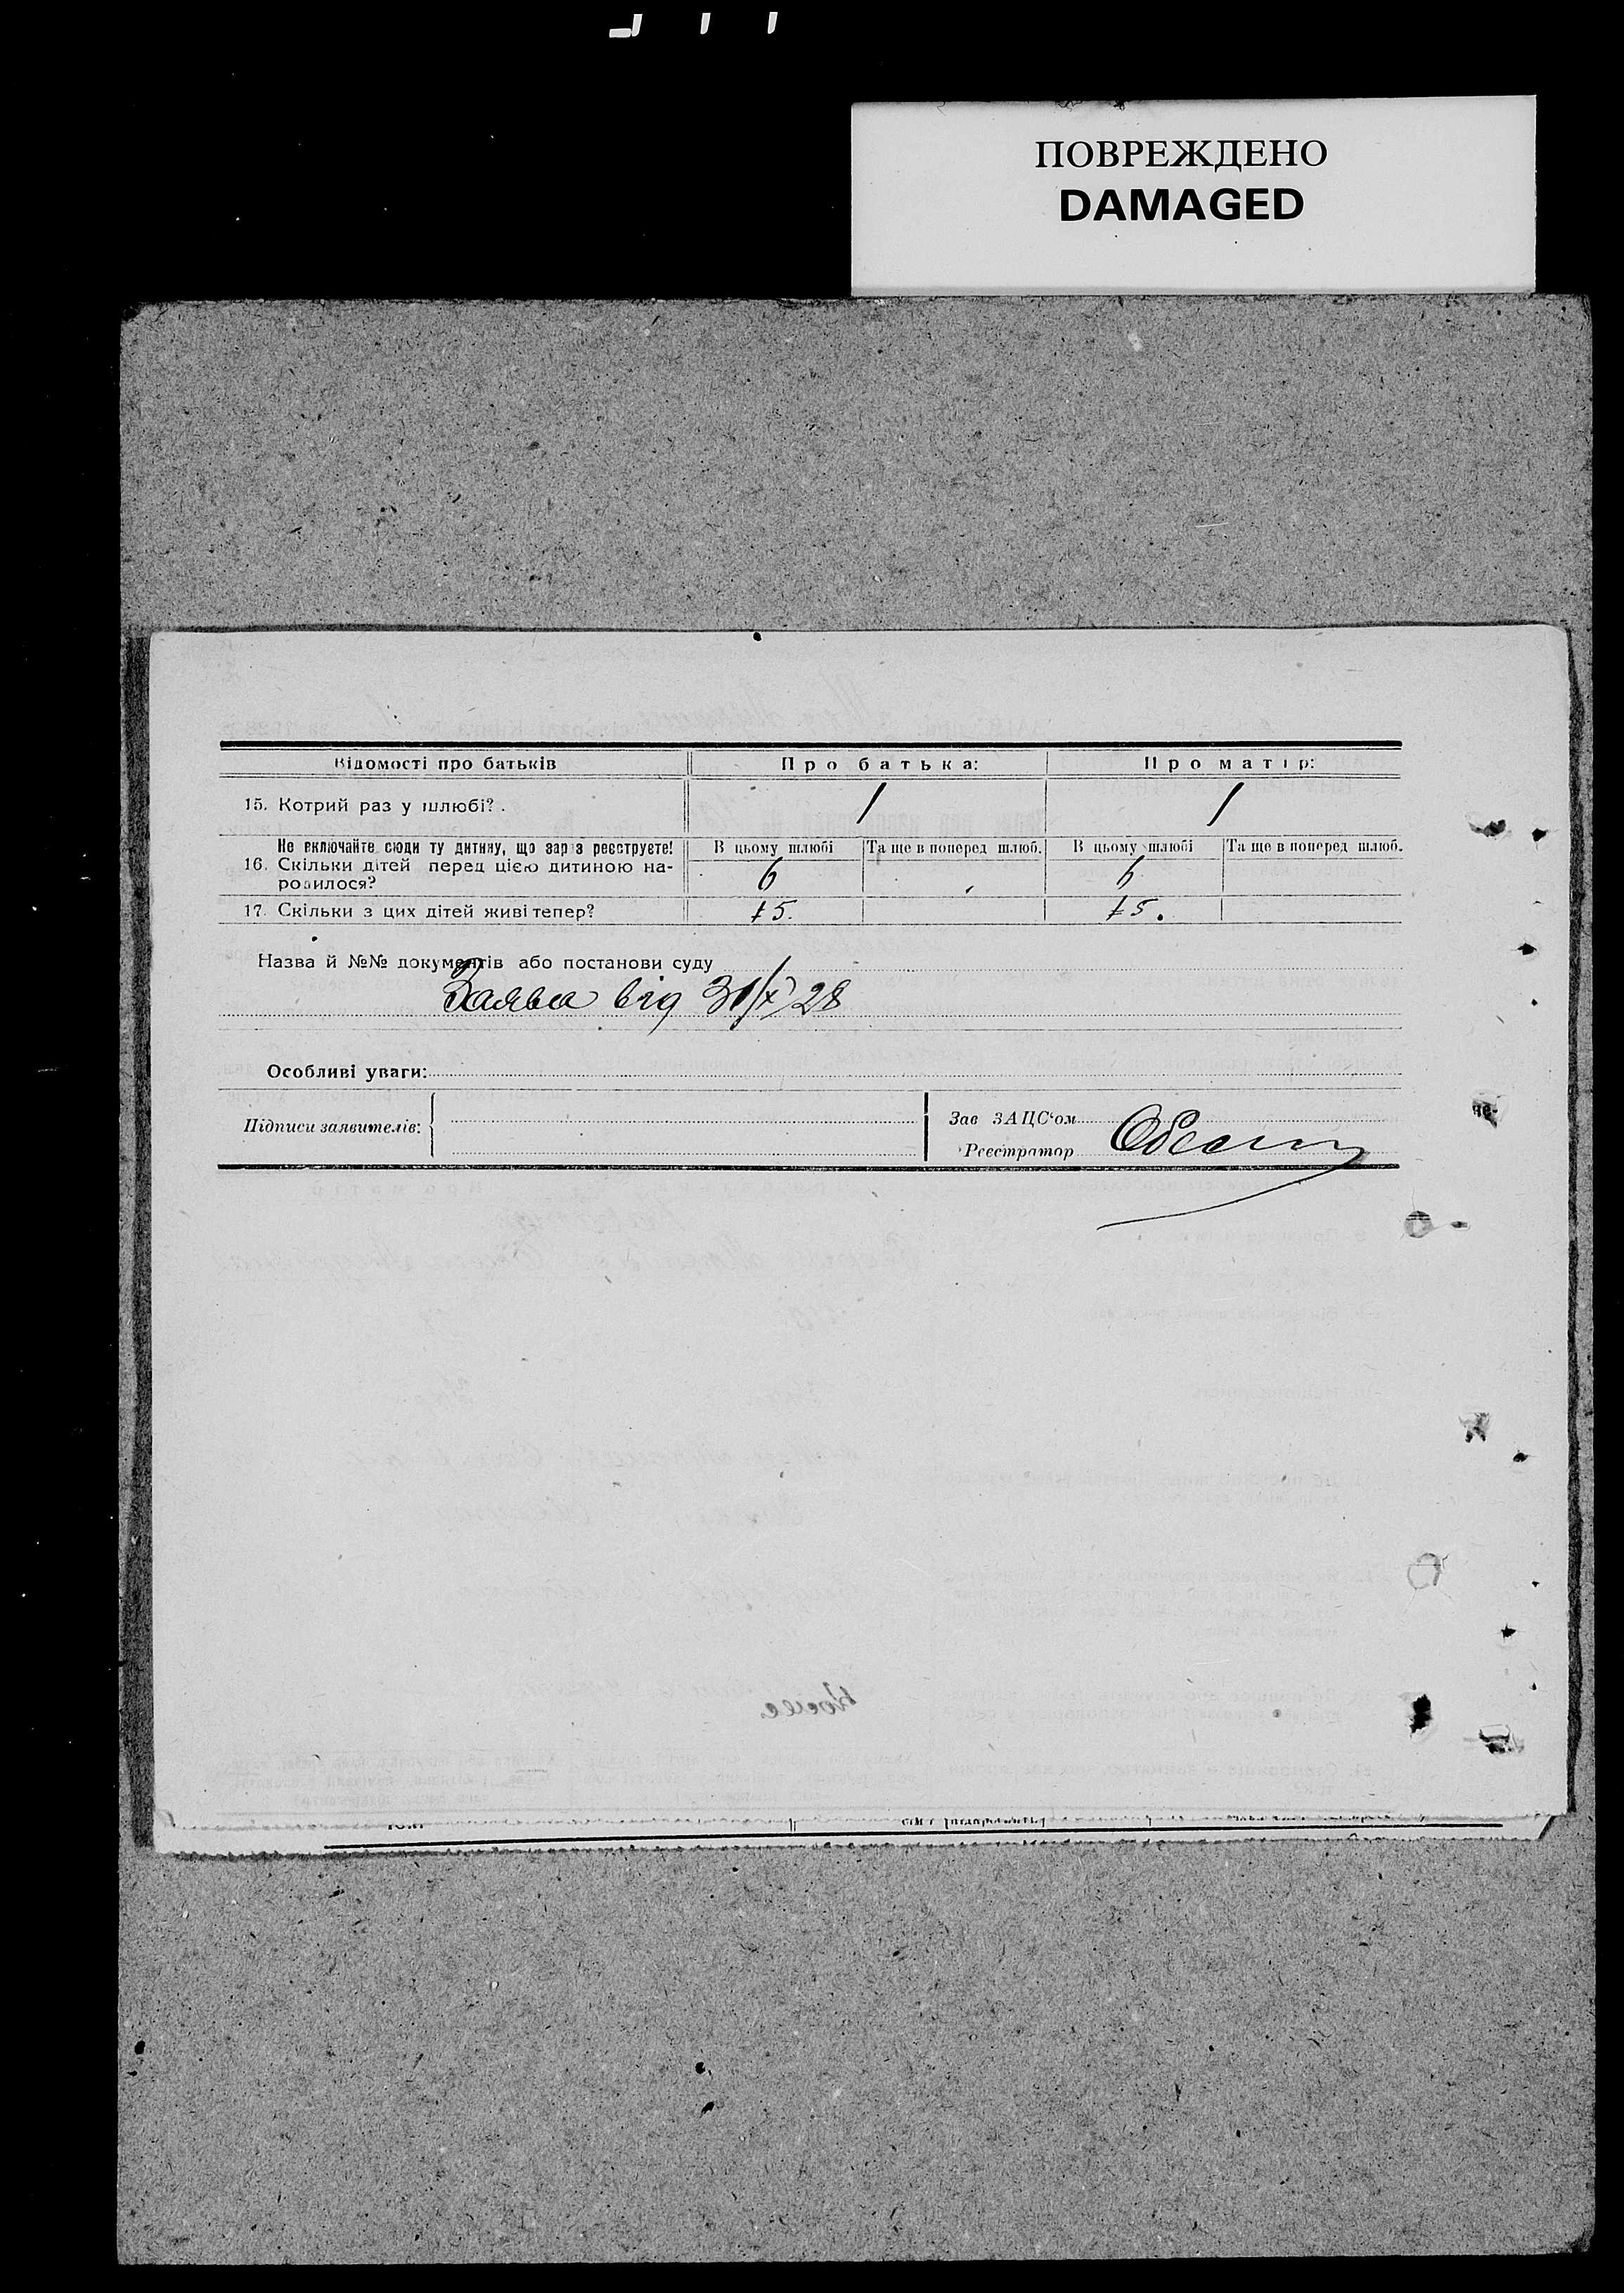 ПОВРЕЖДЕНО
DAMAGED
Відомості про батьків Про батька: Про матір:
15. Котрий раз у шлюбі? . 1 1
Не включайте сюди ту дитину, що зараз реєструєте! В цьому шлюбі Та ще в поперед шлюб. В цьому шлюбі Та ще в поперед шлюб.
16. Скільки дітей перед цією дитиною на-
родилося? 6 6
17. Скільки з цих дітей живі тепер? 5. 5.
Назва й №№ документів або постанови суду
Заява від 31/X 28
Особливі уваги:
Підписи заявителів:
Зав ЗАЦС‘ом
Реєстратор